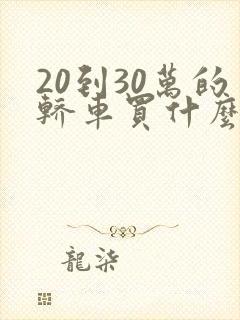 20到30萬的
轎車買什麼
龍柒